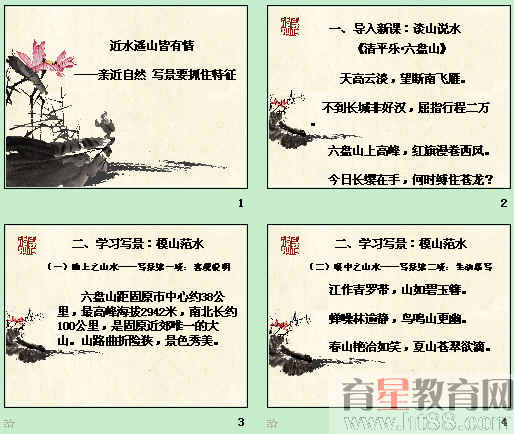 近水遥山皆有情
——亲近自然 写景要抓住特征
1
一、导入新课：谈山说水
《清平乐·六盘山》
天高云淡，望断南飞雁。
不到长城非好汉，屈指行程二万
。
六盘山上高峰，红旗漫卷西风。
今日长缨在手，何时缚住苍龙？
2
二、学习写景：模山范水
（一）地上之山水——写景第一境：客观说明
六盘山距固原市中心约38公
里，最高峰海拔2942米，南北长约
100公里，是固原近郊唯一的大
山。山路曲折险狭，景色秀美。
3
二、学习写景：模山范水
（二）眼中之山水——写景第二境：生动描写
江作青罗带，山如碧玉簪。
蝉噪林逾静，鸟鸣山更幽。
春山艳冶如笑，夏山苍翠欲滴。
4
育星教育网
www.ht88.com